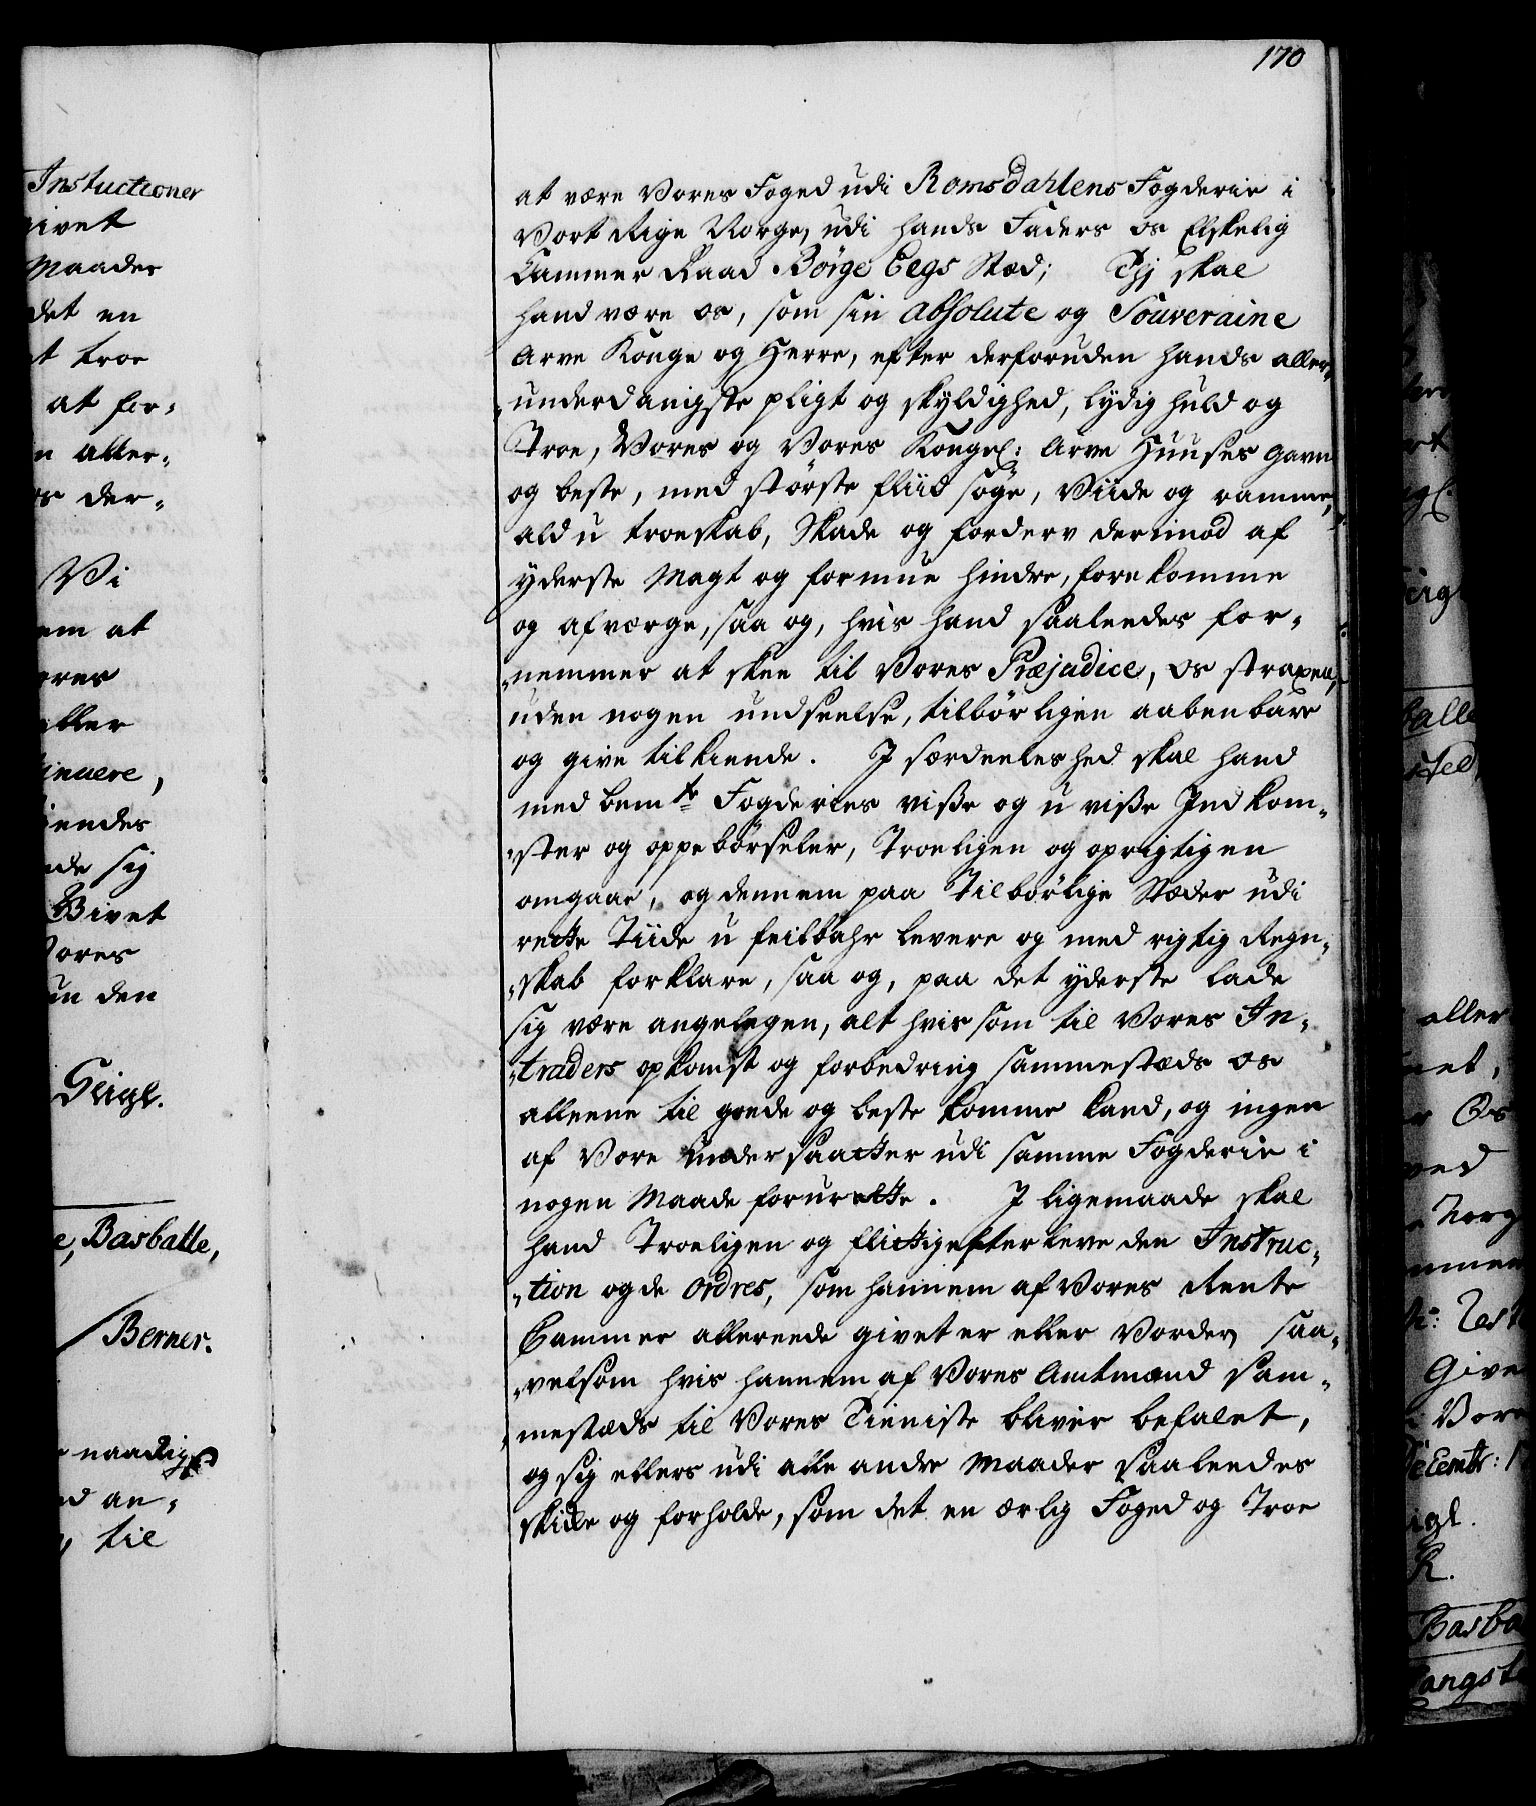 170
Instuctioner
givet
Maader
det en
troe
at for-
aller-
der-
Vi
em at
eller
endes
sig
Bivet
Vores
den
Sligl.
Basballe,
Berner.
naadigst
an-
til
at være Vores Foged udi Romsdahlens Fogderie i
Vort Rige Norge, udi hands Faders os Elskelig
Cammer Raad Börge Eegs Stæd; Thj skal
hand være os, som sin absolute og Souveraine
Arve Konge og Herre, efter derforuden hands aller-
underdanigste pligt og skyldighed, lydig huld og
Troe, Vores og Vores Kongel: Arve Huuses gavn
og beste, med störste fliid söge, Viide og ramme,
ald u troeskab, Skade og forderv derimod af
yderste Magt og formue hindre, forekomme
og afværge, saa og, hvis hand saaleedes for-
nemmer at skee til Vores Præjudice, os straxen,
uden nogen undseelse, tilbörligen aabenbare
og give tilkiende. J særdeeleshed skal hand
med bemte Fogderies visse og u visse Jndkom-
ster og oppebörseler, Troeligen og oprigtigen
omgaae, og dennem paa Tilbörlige Stæder udi
rette Tiide u feilbahr levere og med rigtig Regn-
skab forklare, saa og, paa det yderste lade
sig være angelegen, alt hvis som til Vores In-
traders opkomst og forbedring sammestæds os
alleene til goede og beste komme kand, og ingen
af Vore undersaatter udi samme Fogderie i
nogen Maade forurette. J ligemaade skal
hand Troeligen og flittig efterleve den Instruc-
tion og de Ordres, som hannem af Vores Rente
Cammer allereede givet er eller Vorder, saa-
velsom hvis hannem af Vores Amtmænd sam-
mestæds til Vores Tieniste bliver befalet,
og sig ellers udi alle andre Maader saaleedes
skikke og forholde, som det en ærlig Foged og Troe
aller
Os
ved
Norg
Give
Vore
Decembr:
R.
Basba